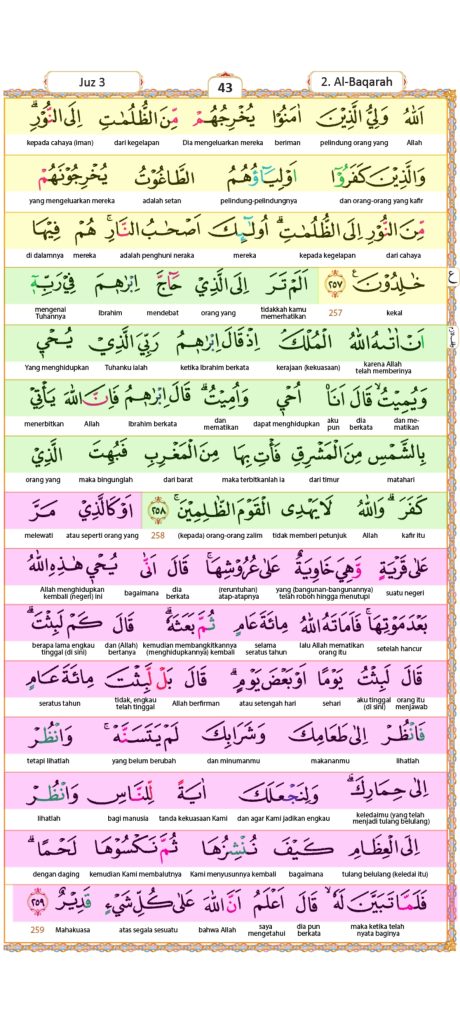 Juz 3
43
2. Al-Baqarah
اَللّٰهُ وَلِيُّ الَّذِيْنَ اٰمَنُوْا يُخْرِجُهُمْ مِّنَ الظُّلُمٰتِ اِلَى النُّوْرِۗ
Allah pelindung orang yang beriman Dia mengeluarkan mereka dari kegelapan kepada cahaya (iman)
وَالَّذِيْنَ كَفَرُوْٓا اَوْلِيَاۤؤُهُمُ الطَّاغُوْتُ يُخْرِجُوْنَهُمْ
dan orang-orang yang kafir pelindung-pelindungnya adalah setan yang mengeluarkan mereka
مِّنَ النُّوْرِ اِلَى الظُّلُمٰتِۗ اُولٰۤىِٕكَ اَصْحٰبُ النَّارِۚ هُمْ فِيْهَا
dari cahaya kepada kegelapan mereka adalah penghuni neraka mereka di dalamnya
خٰلِدُوْنَ ࣖ ٢٥٧ اَلَمْ تَرَ اِلَى الَّذِيْ حَاۤجَّ اِبْرٰهٖمَ فِيْ رَبِّهٖٓ
kekal 257 tidakkah kamu memerhatikan orang yang mendebat Ibrahim mengenai Tuhannya
اَنْ اٰتٰىهُ اللّٰهُ الْمُلْكَۘ اِذْ قَالَ اِبْرٰهٖمُ رَبِّيَ الَّذِيْ يُحْيٖ
karena Allah telah memberinya kerajaan (kekuasaan) ketika Ibrahim berkata Tuhanku ialah Yang menghidupkan
وَيُمِيْتُۙ قَالَ اَنَا۠ اُحْيٖ وَاُمِيْتُۗ قَالَ اِبْرٰهٖمُ فَاِنَّ اللّٰهَ يَأْتِيْ
dan mematikan dia berkata aku pun dapat menghidupkan dan mematikan Ibrahim berkata Allah menerbitkan
بِالشَّمْسِ مِنَ الْمَشْرِقِ فَأْتِ بِهَا مِنَ الْمَغْرِبِ فَبُهِتَ الَّذِيْ
matahari dari timur maka terbitkanlah ia dari barat maka bingunglah orang yang
كَفَرَۗ وَاللّٰهُ لَا يَهْدِى الْقَوْمَ الظّٰلِمِيْنَۚ ٢٥٨ اَوْ كَالَّذِيْ مَرَّ
kafir itu Allah tidak memberi petunjuk (kepada) orang-orang zalim 258 atau seperti orang yang melewati
عَلٰى قَرْيَةٍ وَّهِيَ خَاوِيَةٌ عَلٰى عُرُوْشِهَاۚ قَالَ اَنّٰى يُحْيٖ هٰذِهِ اللّٰهُ
suatu negeri yang (bangunan-bangunannya) telah roboh hingga menutupi (reruntuhan) atap-atapnya dia berkata bagaimana Allah menghidupkan kembali (negeri) ini
بَعْدَ مَوْتِهَاۚ فَاَمَاتَهُ اللّٰهُ مِائَةَ عَامٍ ثُمَّ بَعَثَهٗۗ قَالَ كَمْ لَبِثْتَۗ
setelah hancur lalu Allah mematikan orang itu selama seratus tahun kemudian membangkitkannya (menghidupkannya) kembali dan (Allah) bertanya berapa lama engkau tinggal (di sini)
قَالَ لَبِثْتُ يَوْمًا اَوْ بَعْضَ يَوْمٍۗ قَالَ بَلْ لَّبِثْتَ مِائَةَ عَامٍ
orang itu menjawab aku tinggal (di sini) sehari atau setengah hari Allah berfirman tidak, engkau telah tinggal seratus tahun
فَانْظُرْ اِلٰى طَعَامِكَ وَشَرَابِكَ لَمْ يَتَسَنَّهْۚ وَانْظُرْ
lihatlah makananmu dan minumanmu yang belum berubah tetapi lihatlah
اِلٰى حِمَارِكَۗ وَلِنَجْعَلَكَ اٰيَةً لِّلنَّاسِ وَانْظُرْ
keledaimu (yang telah menjadi tulang belulang) dan agar Kami jadikan engkau tanda kekuasaan Kami bagi manusia lihatlah
اِلَى الْعِظَامِ كَيْفَ نُنْشِزُهَا ثُمَّ نَكْسُوْهَا لَحْمًاۗ
tulang belulang (keledai itu) bagaimana Kami menyusunnya kembali kemudian Kami membalutnya dengan daging
فَلَمَّا تَبَيَّنَ لَهٗۙ قَالَ اَعْلَمُ اَنَّ اللّٰهَ عَلٰى كُلِّ شَيْءٍ قَدِيْرٌ ٢٥٩
maka ketika telah nyata baginya dia pun berkata saya mengetahui bahwa Allah atas segala sesuatu Mahakuasa 259